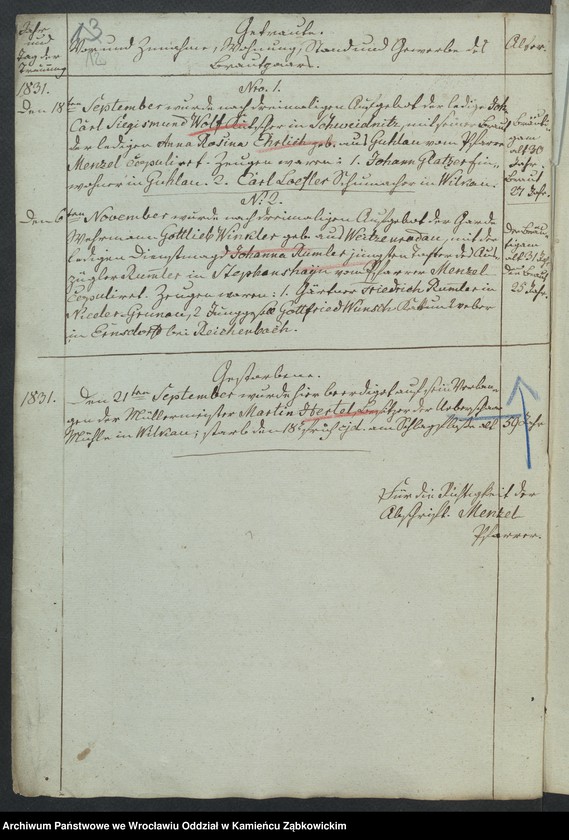 13
12
Jahr und Tag der Trauung
Getraute.
Vor und Zunahme, Wohnung, Stand und Gewerbe des
Brautpaars.
Alter.
1831.
Nro. 1.
Den 18ten September wurde nach dreimaligen Aufgebot der ledige Joh.
Carl Siegismund Wolf Kutscher in Schweidnitz, mit seiner Braut
der ledigen Anna Rosina Ehrlich geb. aus Guhlau vom Pfarrer
Menzel copuliret. Zeugen waren: 1. Johann Glatzer Ein-
wohner in Guhlau. 2. Carl Loefler Schumacher in Wilkau.
Bräuti-
gam
alt 30
Jahr.
Braut
27 Jahr.
No. 2.
Den 6ten November wurde nach dreimaligen Aufgebot der Garde
Wehrmann Gottlieb Winkler geb. aus Weitzenrodau, mit der
ledigen Dienstmagd Johanna Rumler jüngsten Tochter des Aus-
züglers Rumler in Stephanshayn vom Pfarrer Menzel
copuliret. Zeugen waren: 1. Gärtner Friedrich Rumler in
Nieder Grunau, 2 Junggesell Gottfried Wunsch Kattunweber
in Ernsdorf bei Reichenbach.
Der Bräu-
tigam
alt 31 Jahr
die Braut
25 Jahr.
Gestorbene.
1831.
Den 21ten September wurde hier beerdiget auf sein Verlan-
gen der Müllermeister Martin Hertel Besitzer der Ueberschaar
Mühle in Wilkau; starb den 18 früh ejd. am Schlagfluße alt
59 Jahr
Für die Richtigkeit der
Abschrift. Menzel
Pfarrer.
Archiwum Państwowe we Wrocławiu Oddział w Kamieńcu Ząbkowickim